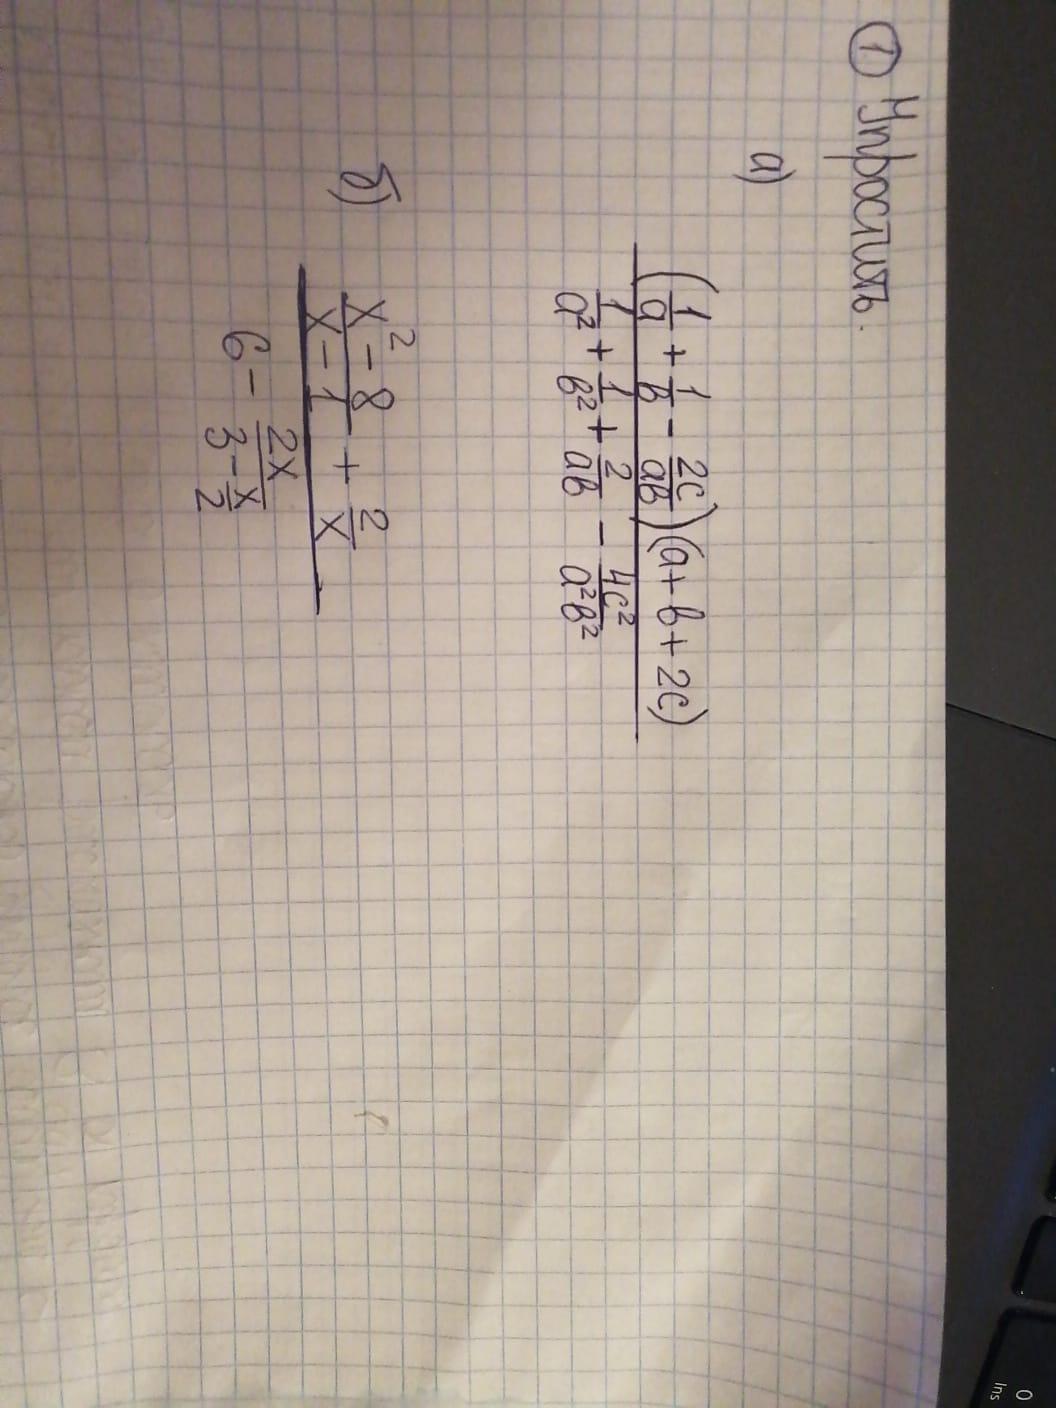 ① Упростить.
а)
(1/a + 1/b - 2c/ab)(a + b + 2c)
1/a² + 1/b² + 2/ab - 4c²/a²b²
б)
x² - 8/x - 1 + 2/x
6 - 2x/3 - x/2
0
Ins